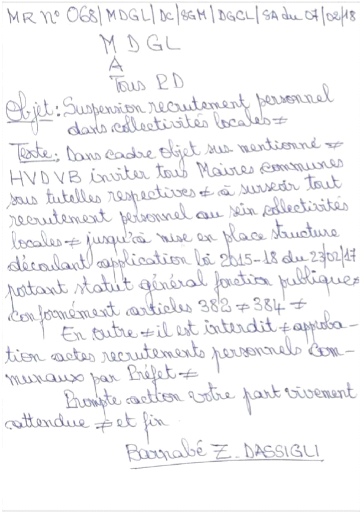 MR N° 068/MDGL/DC/SGM/DGCL/SA du 07/02/18
MDGL
A
Tous PD
Objet: Suspension recrutement personnel
dans collectivités locales ≠
Texte: Dans cadre objet sus mentionné ≠
HVDVB inviter tous Maires communes
sous tutelles respectives ≠ à surseoir tout
recrutement personnel au sein collectivités
locales ≠ jusqu'à mise en place structure
découlant application loi 2015-18 du 23/02/17
portant statut général fonction publique ≠
conformément articles 383 ≠ 384 ≠
En outre ≠ il est interdit ≠ approba-
tion actes recrutements personnels com-
munaux par Préfet ≠
Prompte action votre part vivement
attendue ≠ et fin
Barnabé Z. DASSIGLI